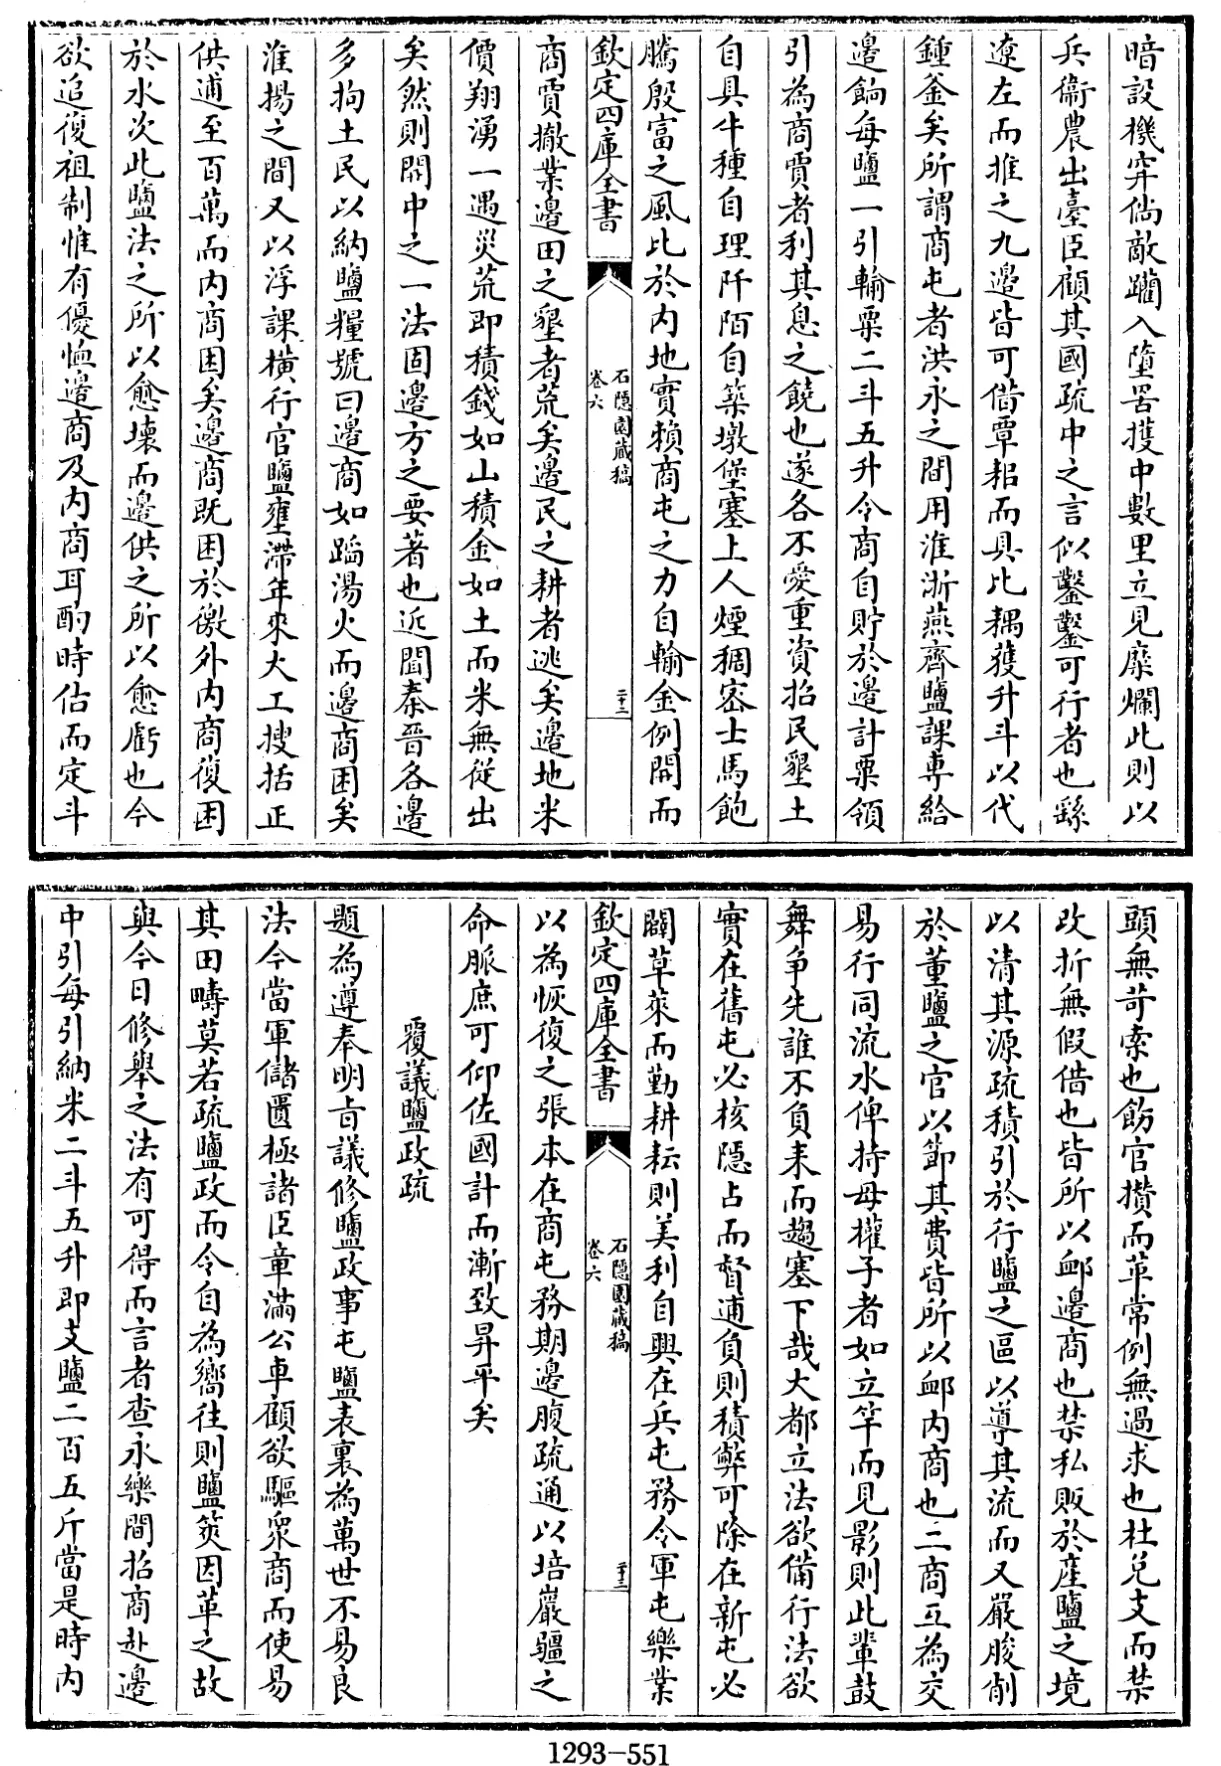 暗設機穽倘敵躪入墮罟擭中數里立見糜爛此則以
兵衞農出臺臣顧其國疏中之言似鑿鑿可行者也繇
遼左而推之九邊皆可借覃耜而具比耦獲升斗以代
鍾釜矣所謂商屯者洪永之間用淮浙燕齊鹽課專給
邊餉每鹽一引輸粟二斗五升令商自貯於邊計粟領
引為商賈者利其息之饒也遂各不愛重資招民墾土
自具牛種自理阡陌自築墩堡塞上人煙稠密士馬飽
騰殷富之風比於内地實賴商屯之力自輸金例開而
欽定四庫全書
石隱園藏稿
卷六
二十二
商賈撤業邊田之墾者荒矣邊民之耕者逃矣邊地米
價翔湧一遇災荒即積錢如山積金如土而米無從出
矣然則開中之一法固邊方之要著也近聞秦晉各邊
多拘土民以納鹽糧號曰邊商如蹈湯火而邊商困矣
淮揚之間又以浮課橫行官鹽壅滯年來大工搜括正
供逋至百萬而内商困矣邊商既困於徼外内商復困
於水次此鹽法之所以愈壞而邊供之所以愈虧也今
欲追復祖制惟有優恤邊商及内商耳酌時估而定斗
頭無苛索也飭官攢而革常例無過求也杜兌支而禁
改折無假借也皆所以䘏邊商也禁私販於産鹽之境
以清其源疏積引於行鹽之區以導其流而又嚴朘削
於董鹽之官以節其費皆所以䘏内商也二商互為交
易行同流水俾持母權子者如立竿而見影則此輩鼓
舞争先誰不負耒而趨塞下哉大都立法欲備行法欲
實在舊屯必核隱占而督逋負則積弊可除在新屯必
闢草萊而勤耕耘則美利自興在兵屯務令軍屯樂業
欽定四庫全書
石隱園藏稿
卷六
二十三
以為恢復之張本在商屯務期邊腹疏通以培嚴疆之
命脈庶可仰佐國計而漸致昇平矣
覆議鹽政疏
題為遵奉明旨議修鹽政事屯鹽表裏為萬世不易良
法今當軍儲匱極諸臣章滿公車顧欲驅衆商而使易
其田疇莫若疏鹽政而令自為嚮往則鹽筴因革之故
與今日修舉之法有可得而言者查永樂間招商赴邊
中引每引納米二斗五升即支鹽二百五斤當是時内
1293-551